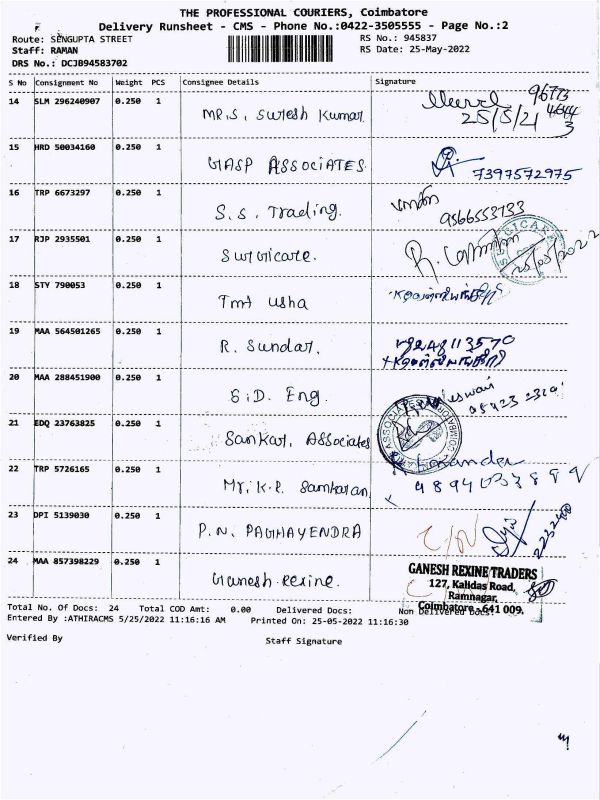 THE PROFESSIONAL COURIERS, Coimbatore
Delivery Runsheet - CMS - Phone No.:0422-3505555 - Page No.:2
Route: SENGUPTA STREET
RS No.: 945837
Staff: RAMAN
RS Date: 25-May-2022
DRS No.: DCJB94583702
S No Consignment No Weight PCS Consignee Details Signature
14 SLM 296240907 0.250 1 MR.S. Suresh Kumar 25/5/21
15 HRD 50034160 0.250 1 GASP ASSOCIATES. 7397572975
16 TRP 6673297 0.250 1 S.S. Trading. 9566553733
17 RJP 2935501 0.250 1 Surgicare. 25/05/2022
18 STY 790053 0.250 1 Tmt usha
19 MAA 564501265 0.250 1 R. Sundar.
20 MAA 288451900 0.250 1 S.D. Eng.
21 EDQ 23763825 0.250 1 Sankar, Associates
22 TRP 5726165 0.250 1 Mr.K.R. Sankaran
23 DPI 5139030 0.250 1 P.N. RAGHAVENDRA
24 MAA 857398229 0.250 1 Ganesh rexine.
GANESH REXINE TRADERS
127, Kalidas Road,
Ramnagar,
Coimbatore - 641 009.
Total No. Of Docs: 24 Total COD Amt: 0.00 Delivered Docs: Non Delivered Docs:
Entered By :ATHIRACMS 5/25/2022 11:16:16 AM Printed On: 25-05-2022 11:16:30
Verified By Staff Signature